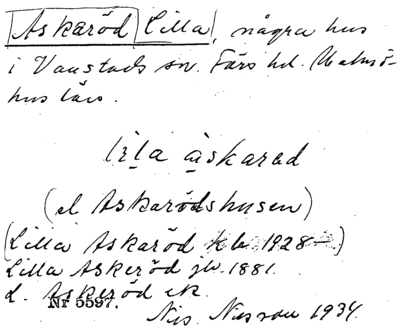 Askaröd Lilla, några hus
i Vanstads sn. Färs hd. Malmö-
hus län.
lịla ạ̀skarød
(el Askarödshusen)
(Lilla Askaröd kb. 1928–)
Lilla Askeröd jb. 1881.
L. Askeröd ek.
Nr 5597.
Nils Nilsson 1934.